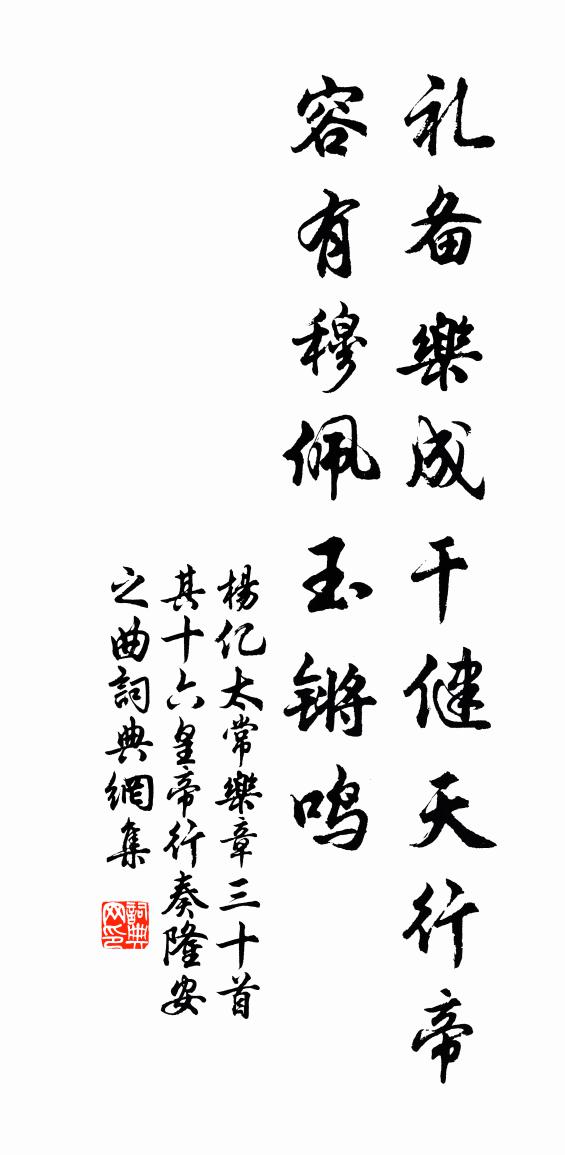 礼备樂成干健天行帝
容有穆佩玉锵鸣
楊亿太常樂章三十首
其十六皇帝行奏隆安
之曲詞典網集
詞典网印